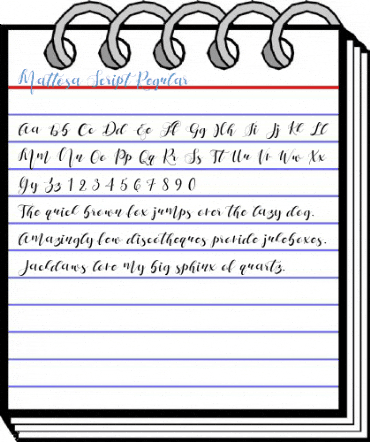 Mattosa Script Regular
Aa Bb Cc Dd Ee Ff Gg Hh Ii Jj Kk Ll
Mm Nn Oo Pp Qq Rr Ss Tt Uu Vv Ww Xx
Yy Zz 1 2 3 4 5 6 7 8 9 0
The quick brown fox jumps over the lazy dog.
Amazingly few discotheques provide jukeboxes.
Jackdaws love my big sphinx of quartz.